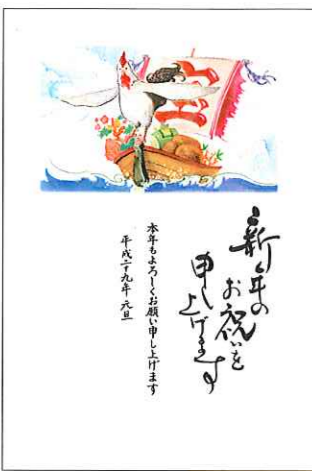 新年の
お祝いを
申し上げます
本年もよろしくお願い申し上げます
平成二十九年 元旦